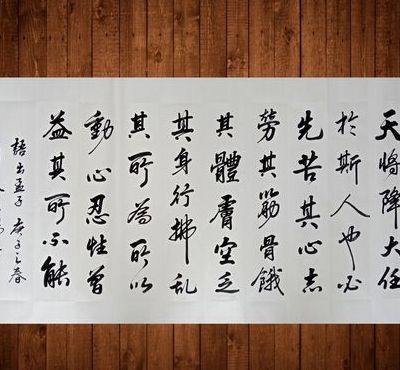 天將降大任
於斯人也必
先苦其心志
勞其筋骨餓
其體膚空乏
其身行拂乱
其所為所以
動心忍性曾
益其所不能
語出孟子 庚子之春